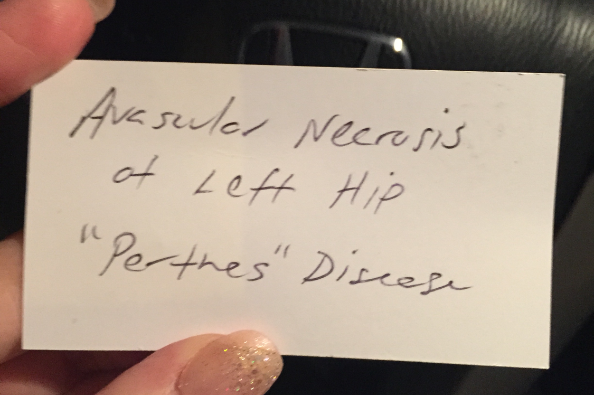 Avascular Necrosis
of Left Hip
"Perthes" Disease